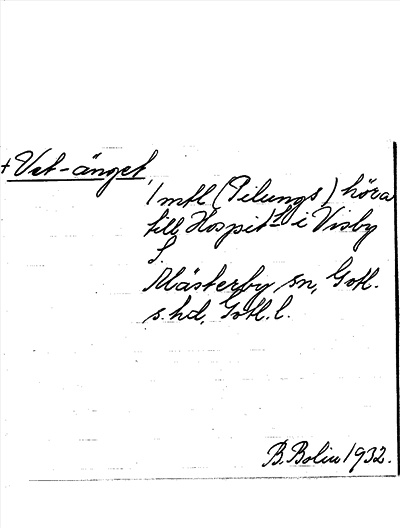 + Vet-änget,
1 mtl (Pilungs) höra
till Hospit-t i Visby
f.
Mästerby sn, Gotl.
s. hd, Gotl. l.
B. Bolin 1932.